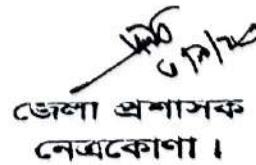 জেলা প্রশাসক
নেত্রকোণা ।